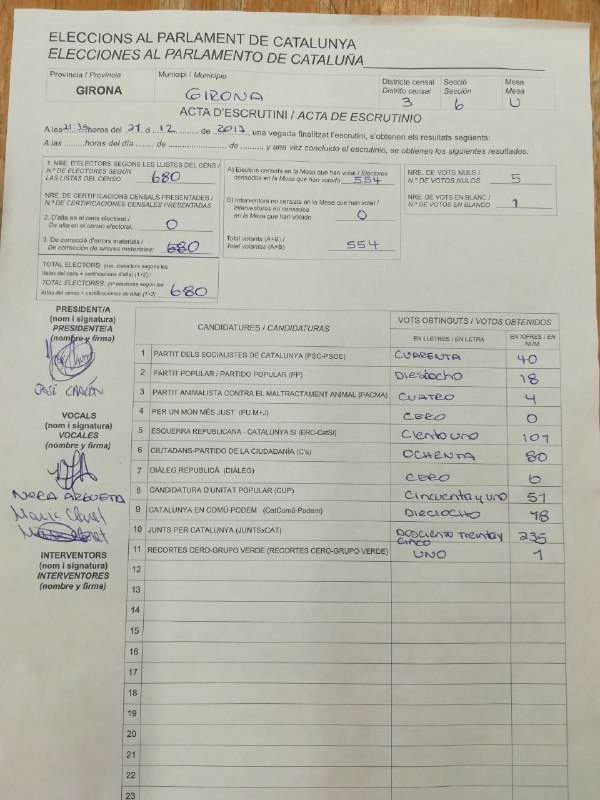 ELECCIONS AL PARLAMENT DE CATALUNYA
ELECCIONES AL PARLAMENTO DE CATALUÑA
Província / Provincia
GIRONA
Municipi / Municipio
GIRONA
Districte censal
Distrito censal
3
Secció
Sección
6
Mesa
Mesa
U
ACTA D'ESCRUTINI / ACTA DE ESCRUTINIO
A les 21:35 hores del 21 d 12 de 2017, una vegada finalitzat l'escrutini, s'obtenen els resultats següents:
A las ............horas del día ........ de .................... de ........ y una vez concluido el escrutinio, se obtienen los siguientes resultados:
1. NRE. D'ELECTORS SEGONS LES LLISTES DEL CENS /
N.º DE ELECTORES SEGÚN
LAS LISTAS DEL CENSO 680
NRE. DE CERTIFICACIONS CENSALS PRESENTADES /
N.º DE CERTIFICACIONES CENSALES PRESENTADAS
2. D'alta en el cens electoral /
De alta en el censo electoral: 0
3. De correcció d'errors materials /
De corrección de errores materiales: 680
TOTAL ELECTORS: (nre. d'electors segons les
llistes del cens + certificacions d'alta) (1+2) /
TOTAL ELECTORES: (nº electores según las
listas del censo + certificaciones de alta) (1+2) 680
A) Electors censats en la Mesa que han votat / Electores
censados en la Mesa que han votado 554
B) Interventors no censats en la Mesa que han votat /
Interventores no censados
en la Mesa que han votado 0
Total votants (A+B) /
Total votantes (A+B) 554
NRE. DE VOTS NULS /
N.º DE VOTOS NULOS 5
NRE. DE VOTS EN BLANC /
N.º DE VOTOS EN BLANCO 1
PRESIDENT/A
(nom i signatura)
PRESIDENTE/A
(nombre y firma)
VOCALS
(nom i signatura)
VOCALES
(nombre y firma)
Maria Claret
INTERVENTORS
(nom i signatura)
INTERVENTORES
(nombre y firma)
CANDIDATURES / CANDIDATURAS
VOTS OBTINGUTS / VOTOS OBTENIDOS
EN LLETRES / EN LETRA
EN XIFRES / EN NÚM.
1 PARTIT DELS SOCIALISTES DE CATALUNYA (PSC-PSOE) CUARENTA 40
2 PARTIT POPULAR / PARTIDO POPULAR (PP) DIECIOCHO 18
3 PARTIT ANIMALISTA CONTRA EL MALTRACTAMENT ANIMAL (PACMA) CUATRO 4
4 PER UN MÓN MÉS JUST (PUM+J) CERO 0
5 ESQUERRA REPUBLICANA - CATALUNYA SÍ (ERC-CatSí) Ciento uno 101
6 CIUTADANS-PARTIDO DE LA CIUDADANÍA (C's) OCHENTA 80
7 DIÀLEG REPUBLICÀ (DIÀLEG) CERO 0
8 CANDIDATURA D'UNITAT POPULAR (CUP) Cincuenta y uno 51
9 CATALUNYA EN COMÚ-PODEM (CatComú-Podem) DIECIOCHO 18
10 JUNTS PER CATALUNYA (JUNTSxCAT) DOSCIENTO TREINTA Y CINCO 235
11 RECORTES CERO-GRUPO VERDE (RECORTES CERO-GRUPO VERDE) UNO 1
12
13
14
15
16
17
18
19
20
21
22
23